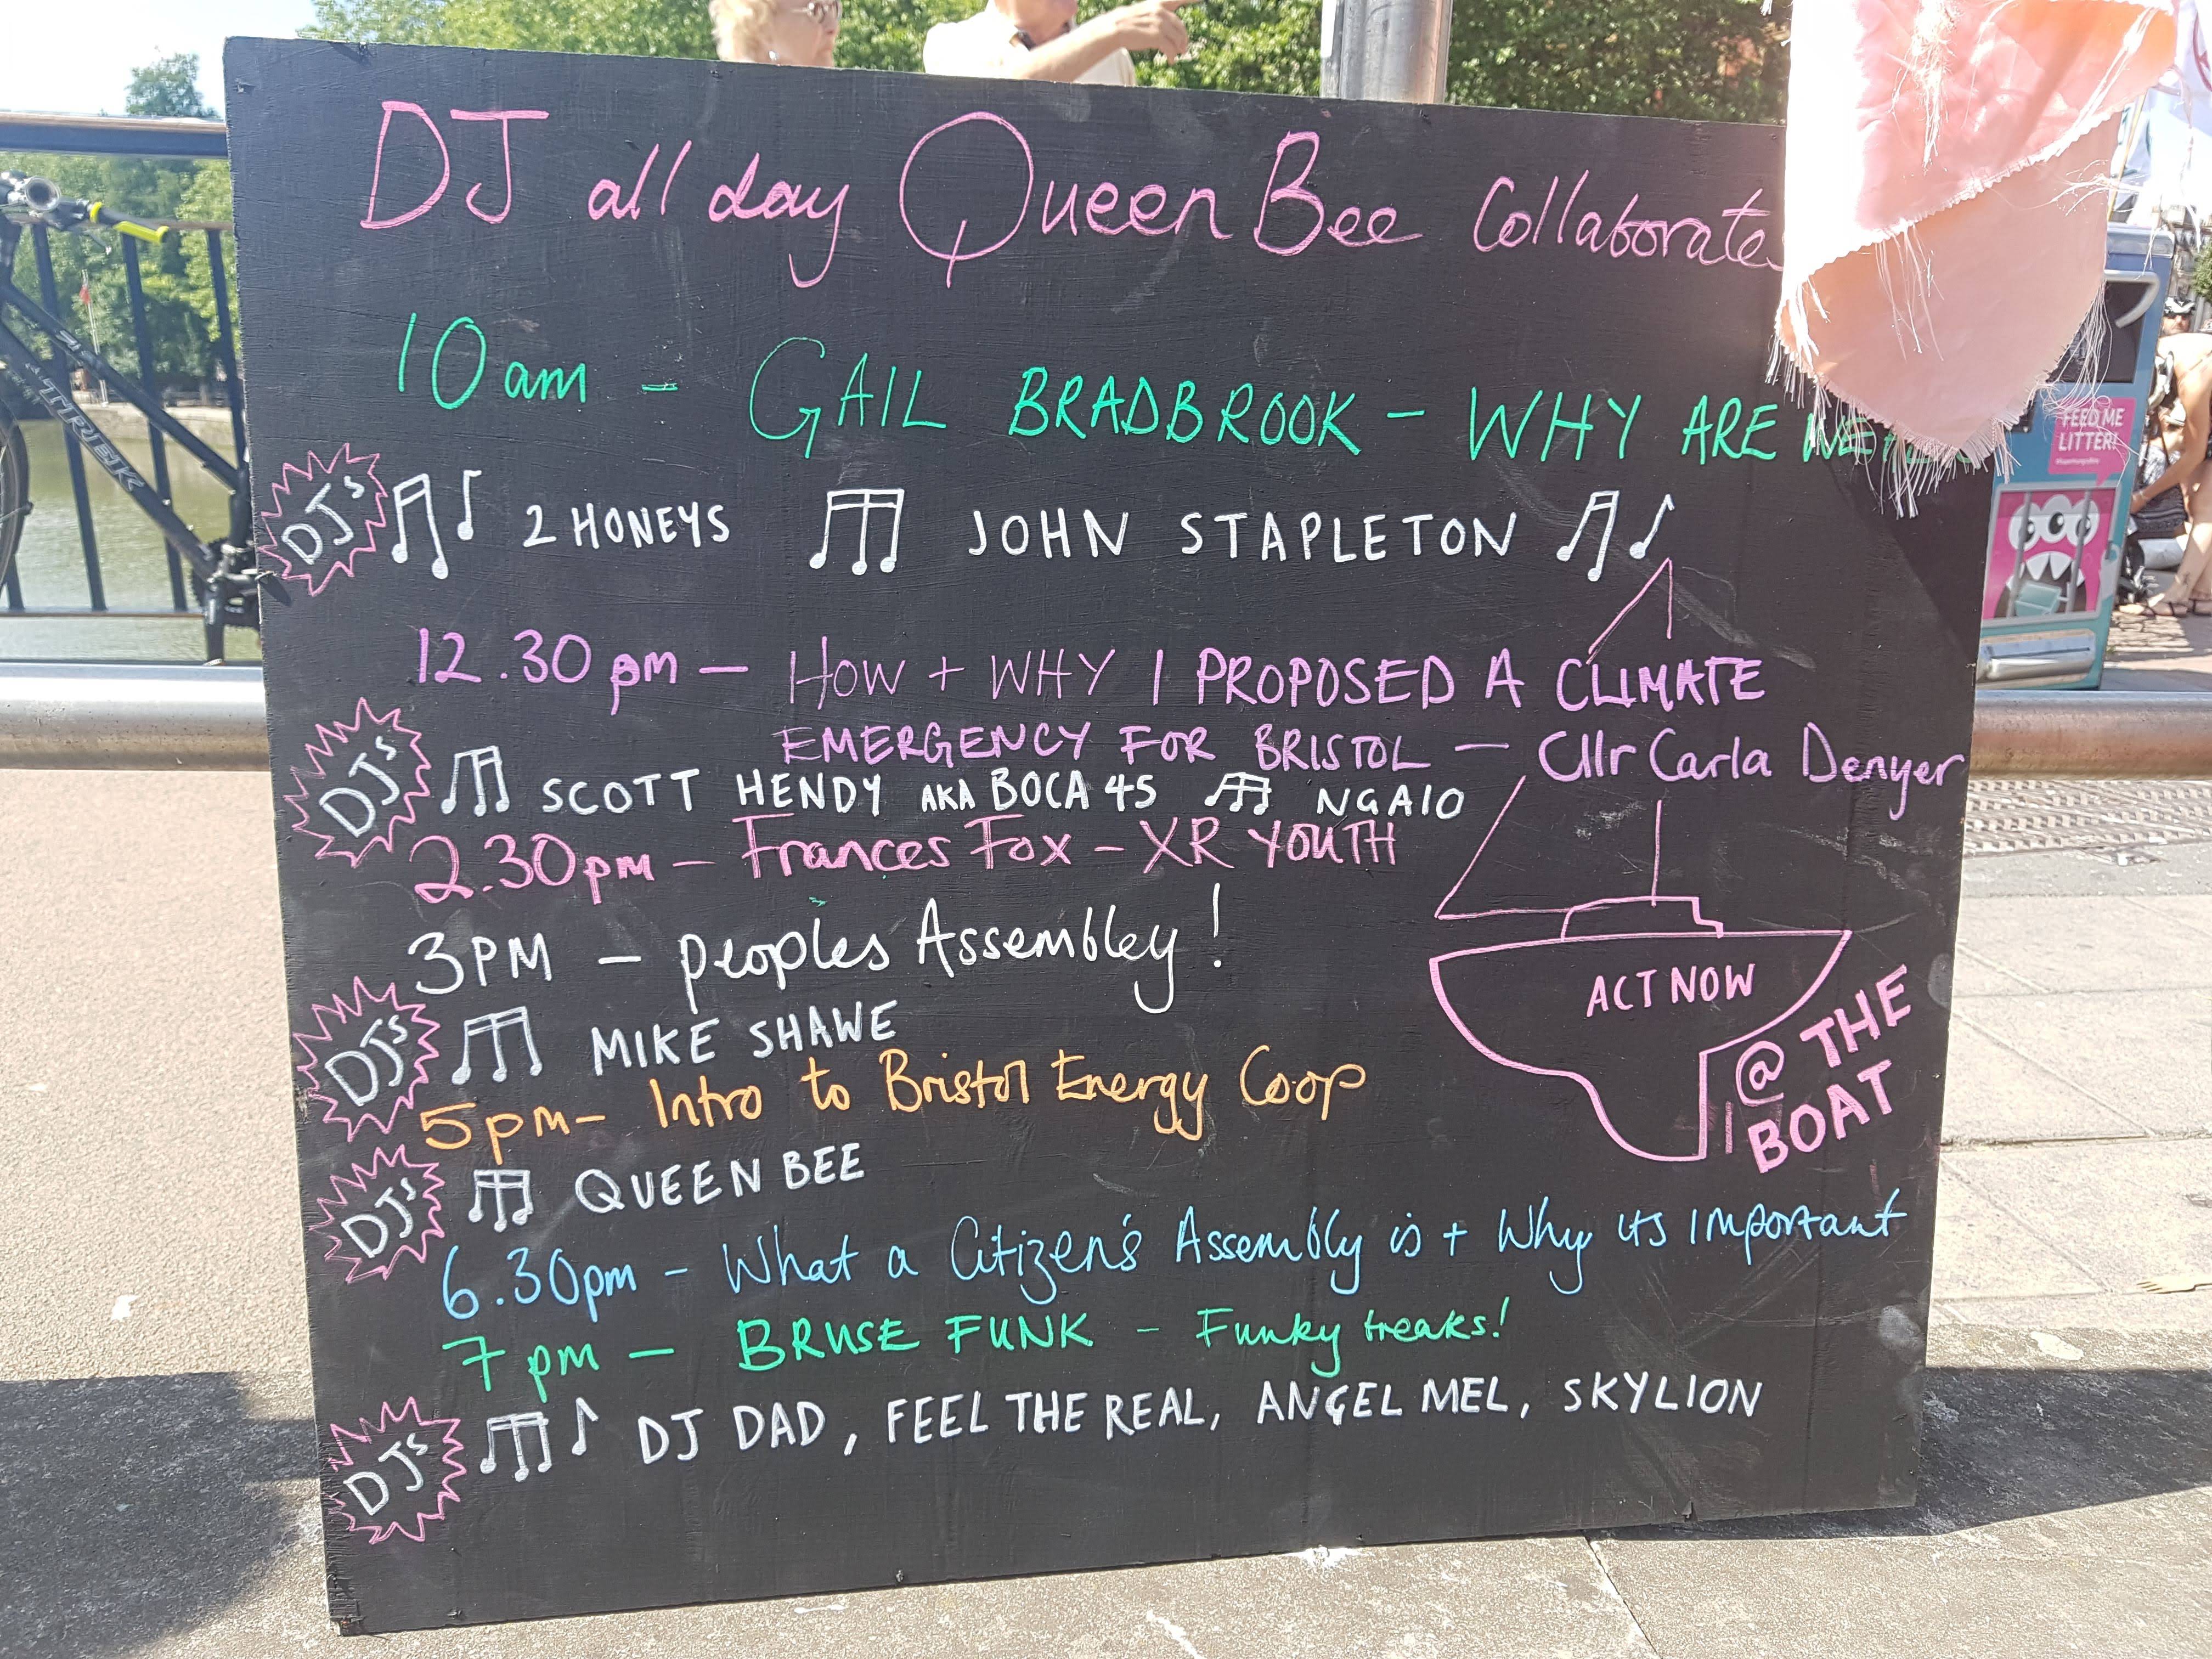 DJ all day Queen Bee Collaborate
10am - GAIL BRADBROOK - WHY ARE WE
DJs 2 HONEYS JOHN STAPLETON
12.30pm - HOW + WHY I PROPOSED A CLIMATE
EMERGENCY FOR BRISTOL - Cllr Carla Denyer
DJs SCOTT HENDY AKA BOCA 45 NGAIO
2.30pm - Frances Fox - XR YOUTH
3PM - peoples Assembley!
ACT NOW
@ THE
BOAT
DJs MIKE SHAWE
5pm - Intro to Bristol Energy Coop
DJs QUEEN BEE
6.30pm - What a Citizen's Assembly is + Why its important
7pm - BRUSE FUNK - Funky treaks!
DJs DJ DAD, FEEL THE REAL, ANGEL MEL, SKYLION
TREK
FEED ME
LITTER!